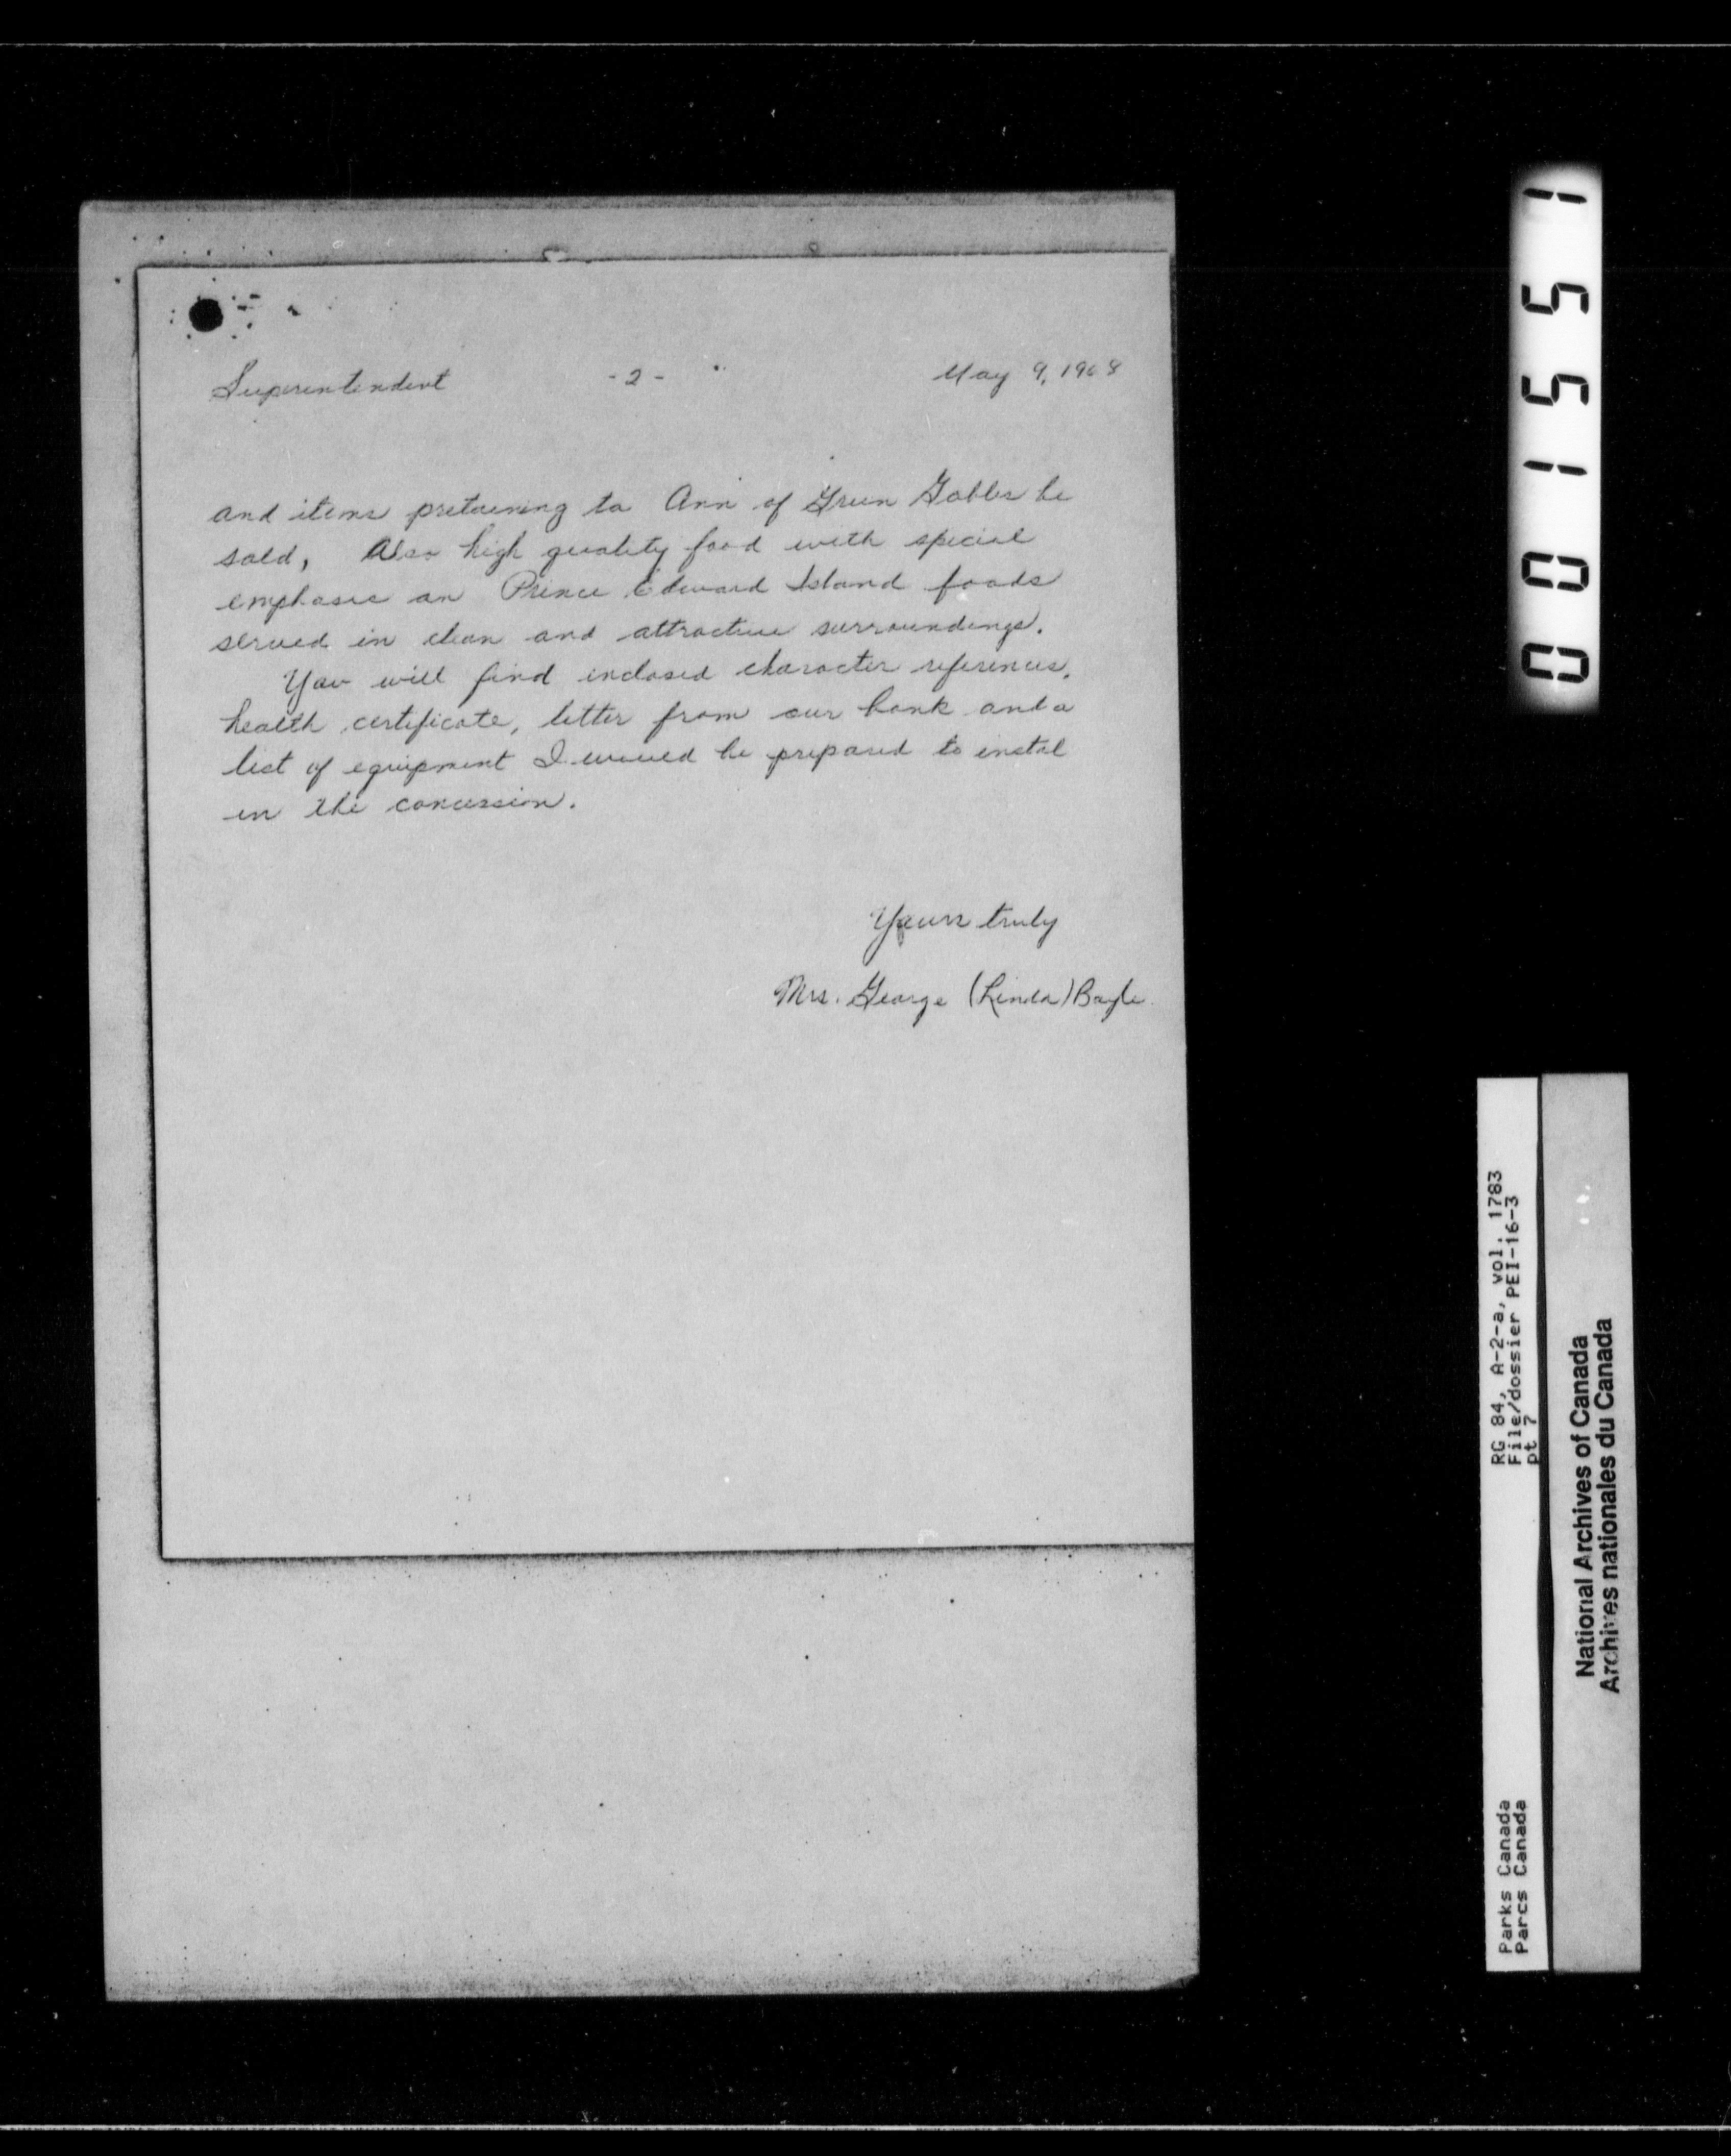 Superintendent - 2 - May 9, 1968
and items pretaining to Ann of Green Gables be
sold, Also high quality food with special
emphasis on Prince Edward Island foods
served in clean and attractive surroundings.
You will find inclosed character references,
health certificate, letter from our bank and a
list of equipment I would be prepared to instal
in the concession.
Yours truly
Mrs. George (Linda) Bayle
001551
RG 84, A-2-a, vol. 1783
File/dossier PEI-16-3
pt 7
Parks Canada
Parcs Canada
National Archives of Canada
Archives nationales du Canada